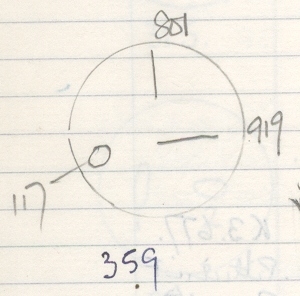 801
919
117
35.9